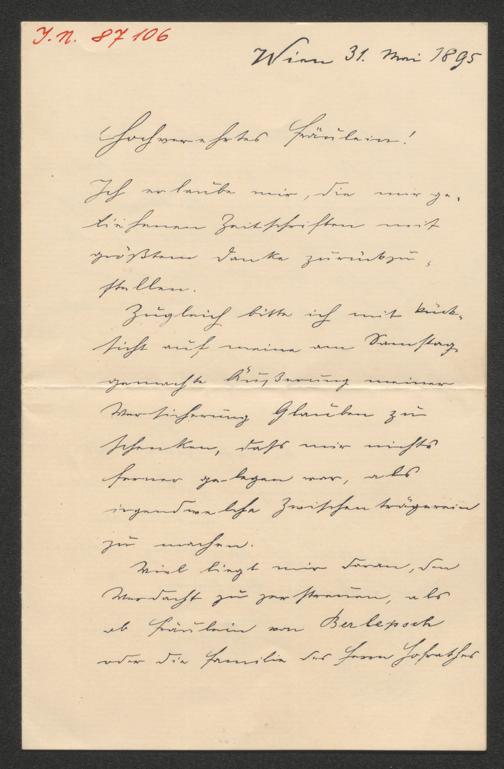 I.N. 87106
Wien 31. Mai 1895
Hochverehrtes Fräulein!
Ich erlaube mir, die mir ge-
liehenen Zeitschriften mit
größtem Danke zurückzu-
stellen.
Zugleich bitte ich mit Rück-
sicht auf meine am Samstag
gemachte Äußerung meiner
Versicherung Glauben zu
schenken, daß mir nichts
ferner gelegen war, als
irgendwelche Zwischenträgerein
zu machen.
Viel liegt mir daran, den
Verdacht zu zerstreuen, als
ob Fräulein von Berlepsch
oder die Familie des Herrn Hofrathes